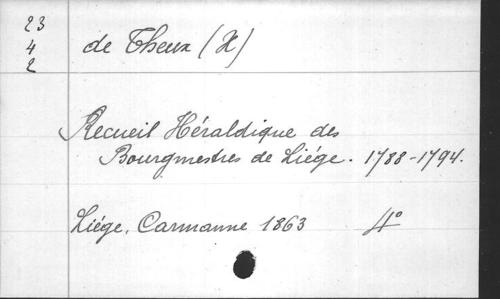 23
4
2
de Theux (X)
Recueil Héraldique des
Bourgmestres de Liége. 1788-1794.
Liége, Carmanne 1863 4°